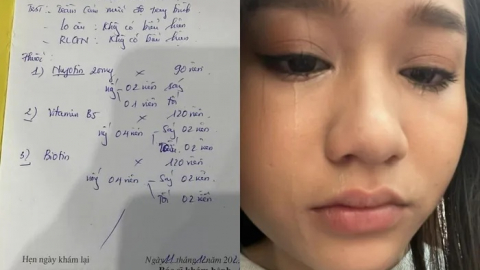 Test: Trầm Cảm mức độ trung bình
- Lo âu: Không có biểu hiện
- RLCN: Không có biểu hiện
Thuốc:
1) 20mg x 90 viên
02 viên sáng
01 viên tối
2) Vitamin B5 x 120 viên
uống 04 viên - Sáng 02 viên
Tối 02 viên
3) Biotin x 120 viên
uống 04 viên - Sáng 02 viên
Tối 02 viên
Hẹn ngày khám lại
Ngày 11 tháng 12 năm 202
Bác sĩ khám bệnh